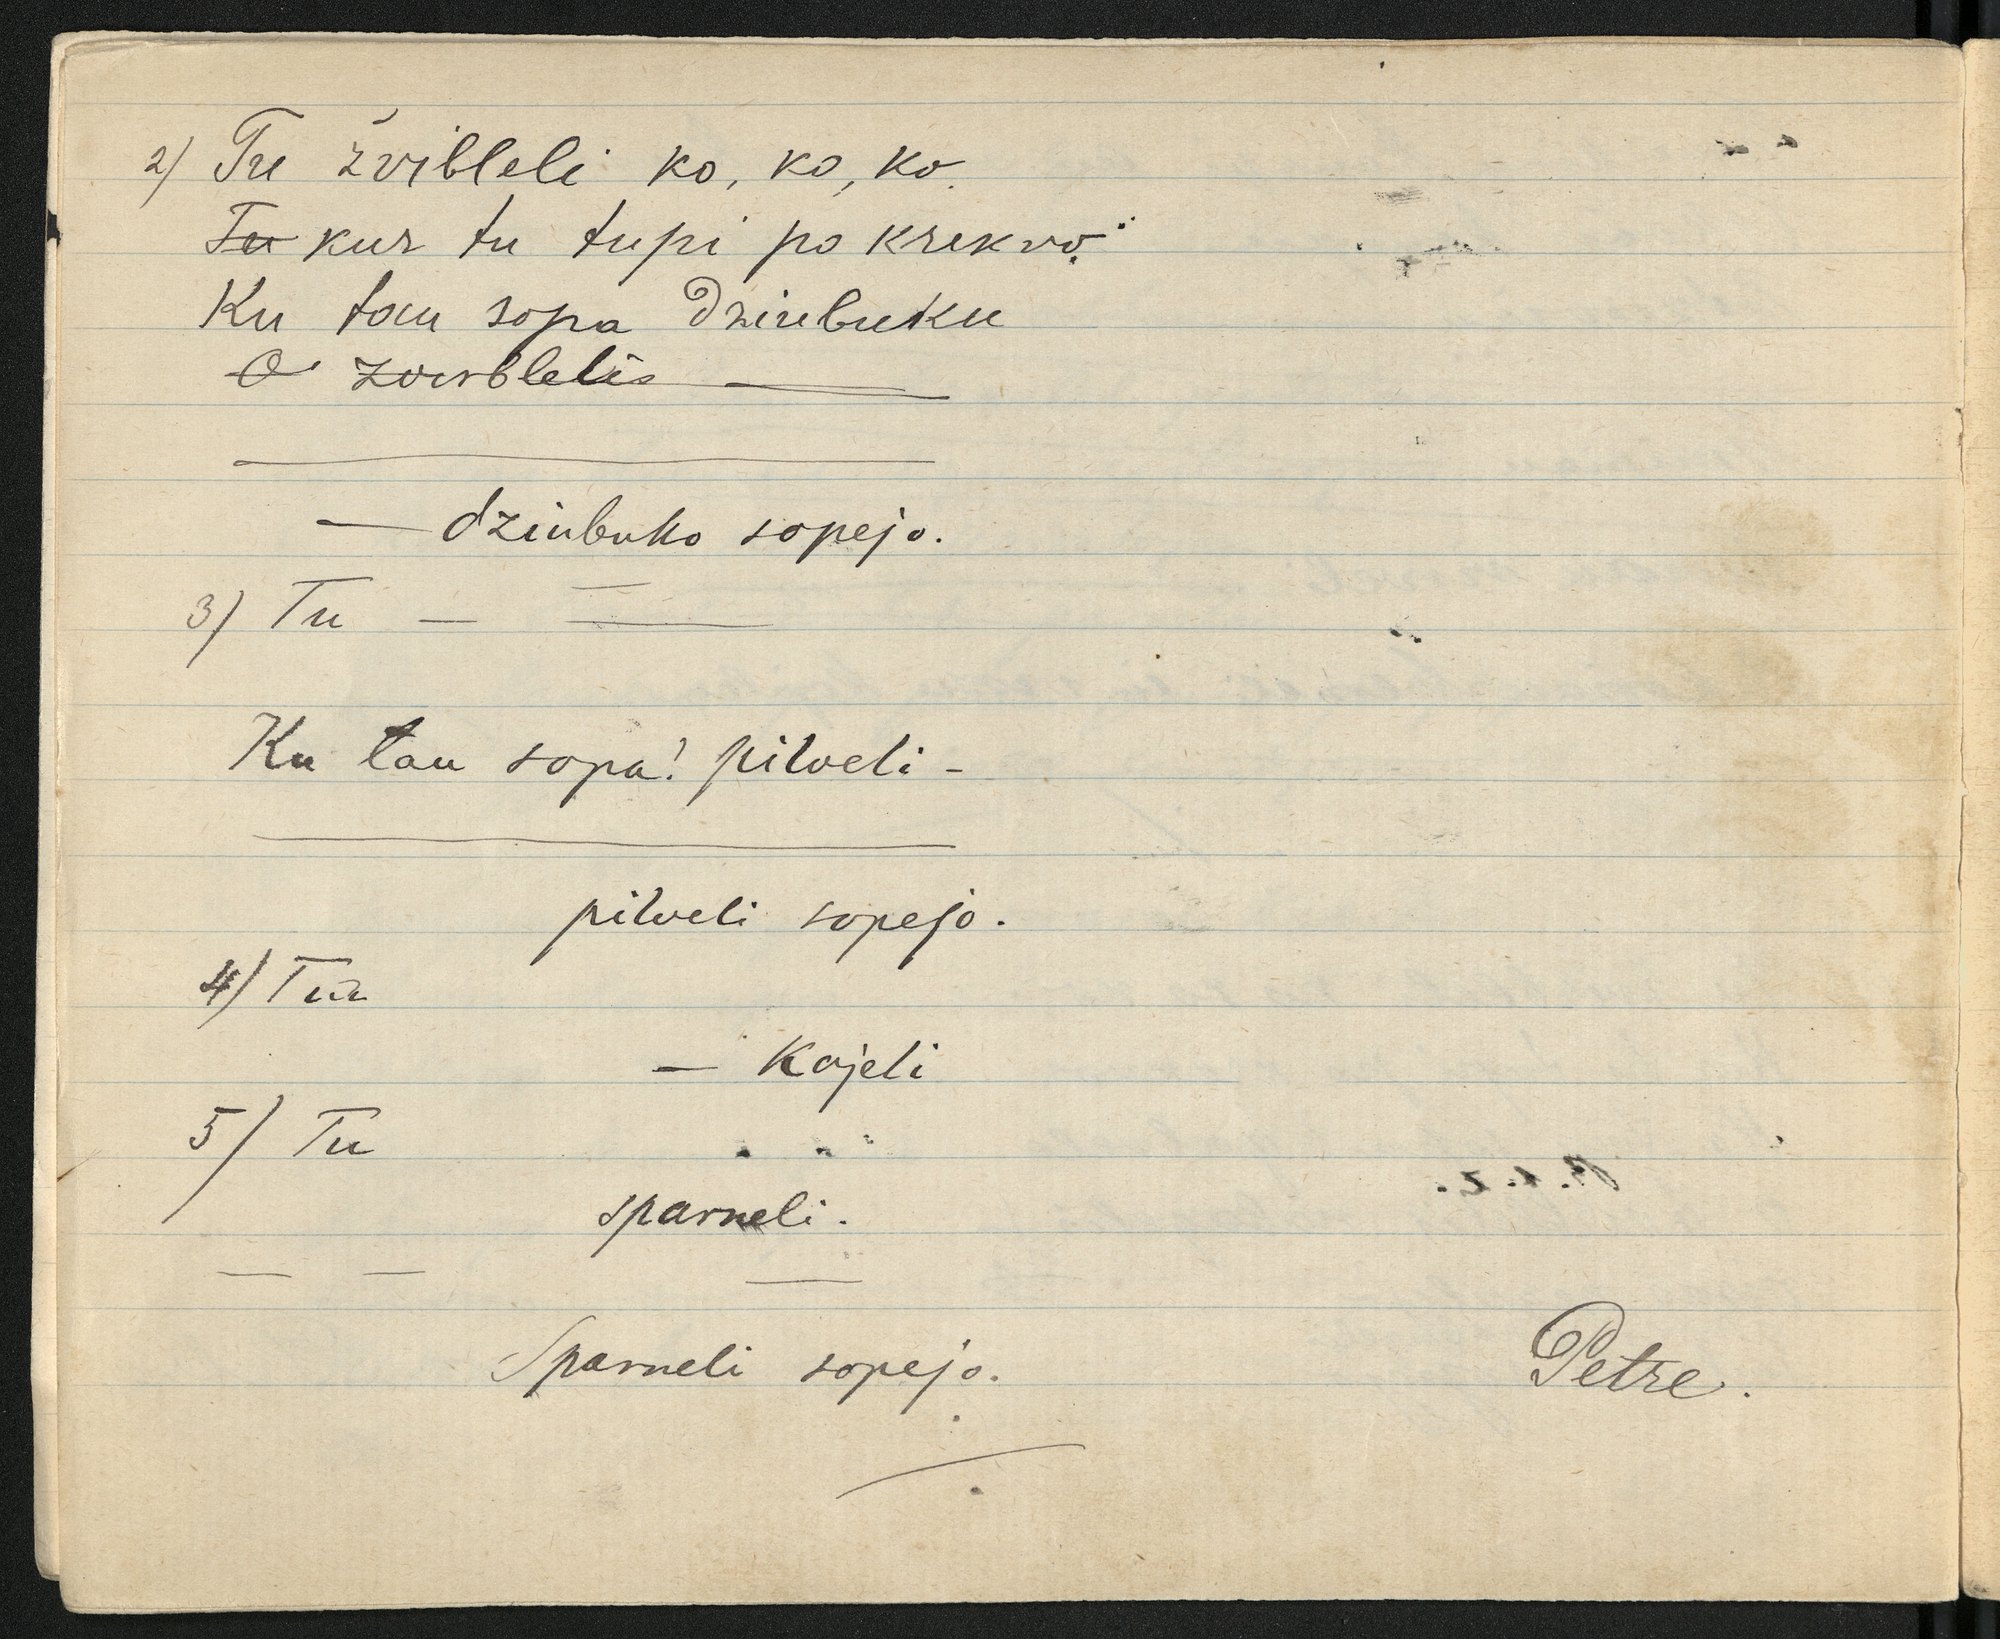 2) Tu žvibleli ko, ko, ko.
Tu kur tu tupi po krekvo.
Ku tau sopa dziubuku
O zvirblelis —
— dziubuko sopejo.
3) Tu — —
Ku tau sopa! pilveli -
pilveli sopejo.
4) Tu
— Kojeli
5) Tu
sparneli.
— — —
Sparneli sopejo.
Petre.